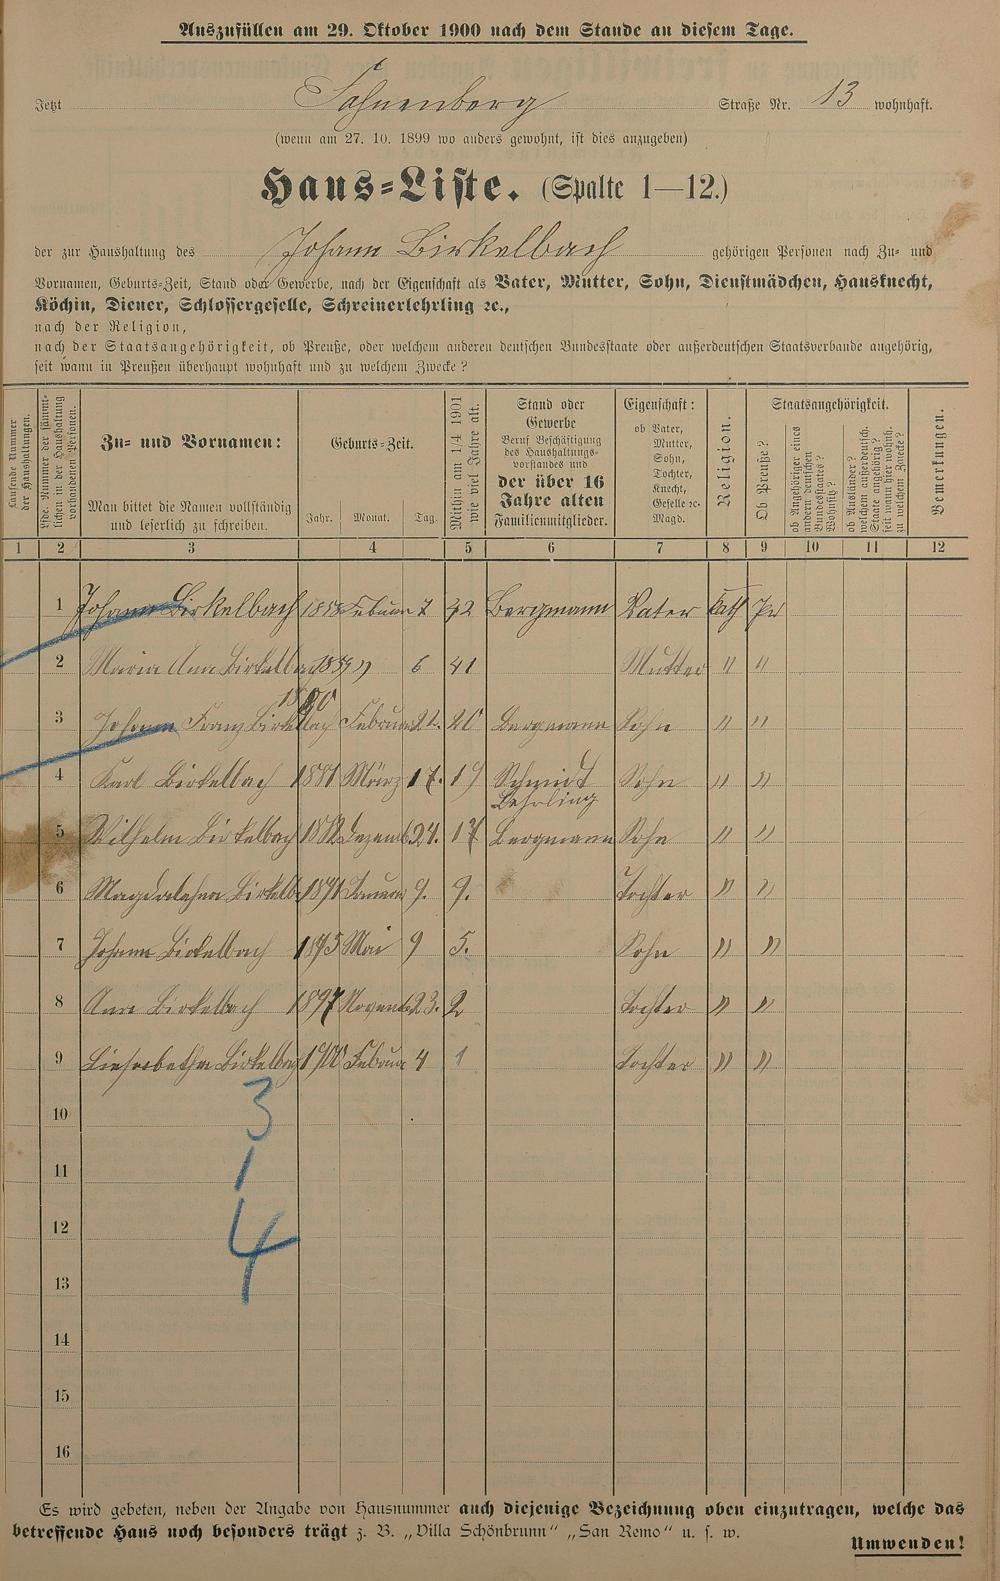 Auszufüllen am 29. Oktober 1900 nach dem Stande an diesem Tage.
Jetzt Sohnenberg Straße Nr. 13 wohnhaft.
(wenn am 27. 10. 1899 wo anders gewohnt, ist dies anzugeben)
Haus-Liste. (Spalte 1—12.)
der zur Haushaltung des Johann Birkelbach gehörigen Personen nach Zu- und
Vornamen, Geburts-Zeit, Stand oder Gewerbe, nach der Eigenschaft als Vater, Mutter, Sohn, Dienstmädchen, Hausknecht,
Köchin, Diener, Schlossergeselle, Schreinerlehrling ꝛc.,
nach der Religion,
nach der Staatsangehörigkeit, ob Preuße, oder welchem anderen deutschen Bundesstaate oder außerdeutschen Staatsverbande angehörig,
seit wann in Preußen überhaupt wohnhaft und zu welchem Zwecke?
Laufende Nummer der Haushaltungen.
Lfde. Nummer der sämmtlichen in der Haushaltung vorhandenen Personen.
Zu- und Vornamen:
Man bittet die Namen vollständig
und leserlich zu schreiben.
Geburts-Zeit.
Jahr. Monat. Tag.
Mithin am 1/4 1901 wie viel Jahre alt.
Stand oder
Gewerbe
Beruf Beschäftigung
des Haushaltungs-
vorstandes und
der über 16
Jahre alten
Familienmitglieder.
Eigenschaft:
ob Vater,
Mutter,
Sohn,
Tochter,
Knecht,
Geselle ꝛc.
Magd.
Religion.
Staatsangehörigkeit.
Ob Preuße?
ob Angehöriger eines andern deutschen Bundesstaates? Wohnsitz?
ob Ausländer? welchem außerdeutsch. Staate angehörig? seit wann hier wohnh. zu welchem Zwecke?
Bemerkungen.
1 2 3 4 5 6 7 8 9 10 11 12
1 Johann Birkelbach Februar 7 Bergmann Vater kath Pr
2 Maria Ana Birkelbach 6 41 Mutter " "
3 Johann Franz Birkelbach Februar 22. 20 Bergmann Sohn " "
4 Karl Birkelbach 1881 März 17. 19 Schmidt Sohn " "
Lehrling
5 Wilhelm Birkelbach 1882 Dezemb 24. 17 Bergmann Sohn " "
6 Magdalehna Birkelb 1891 Januar 9. 9. Tochter " "
7 Johann Birkelbach 1895 Mai 9 5. Sohn " "
8 Ana Birkelbach 1897 Novemb 23. 2 Tochter " "
9 Birkelbach 1900 Februar 4 1 Tochter " "
3
10
1
11
4
12
13
14
15
16
Es wird gebeten, neben der Angabe von Hausnummer auch diejenige Bezeichnung oben einzutragen, welche das
betreffende Haus noch besonders trägt z. B. „Villa Schönbrunn“ „San Remo“ u. s. w.
Umwenden!